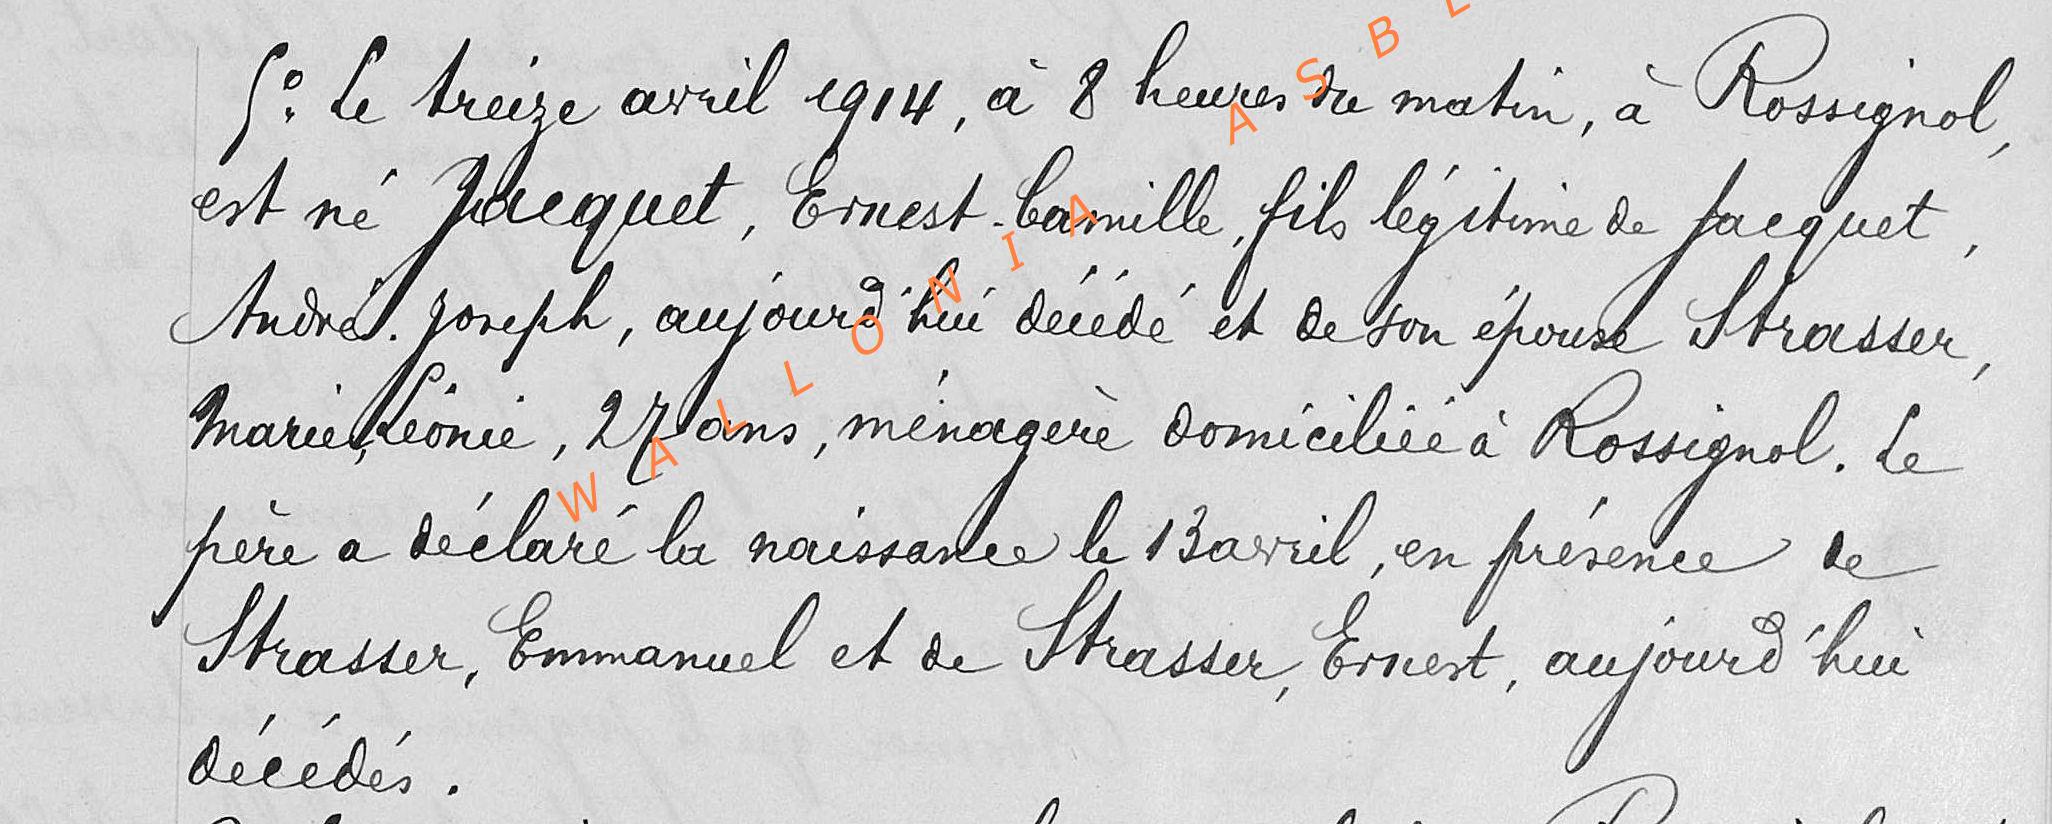 5°. Le treize avril 1914, à 8 heures du matin, à Rossignol,
est né Jacquet, Ernest-Camille, fils légitime de Jacquet,
André-Joseph, aujourd'hui décédé et de son épouse Strasser,
Marie, Léonie, 27 ans, ménagère domiciliée à Rossignol. Le
père a déclaré la naissance le 13 avril, en présence de
Strasser, Emmanuel et de Strasser, Ernest, aujourd'hui
décédés.
WALLONIA ASBL